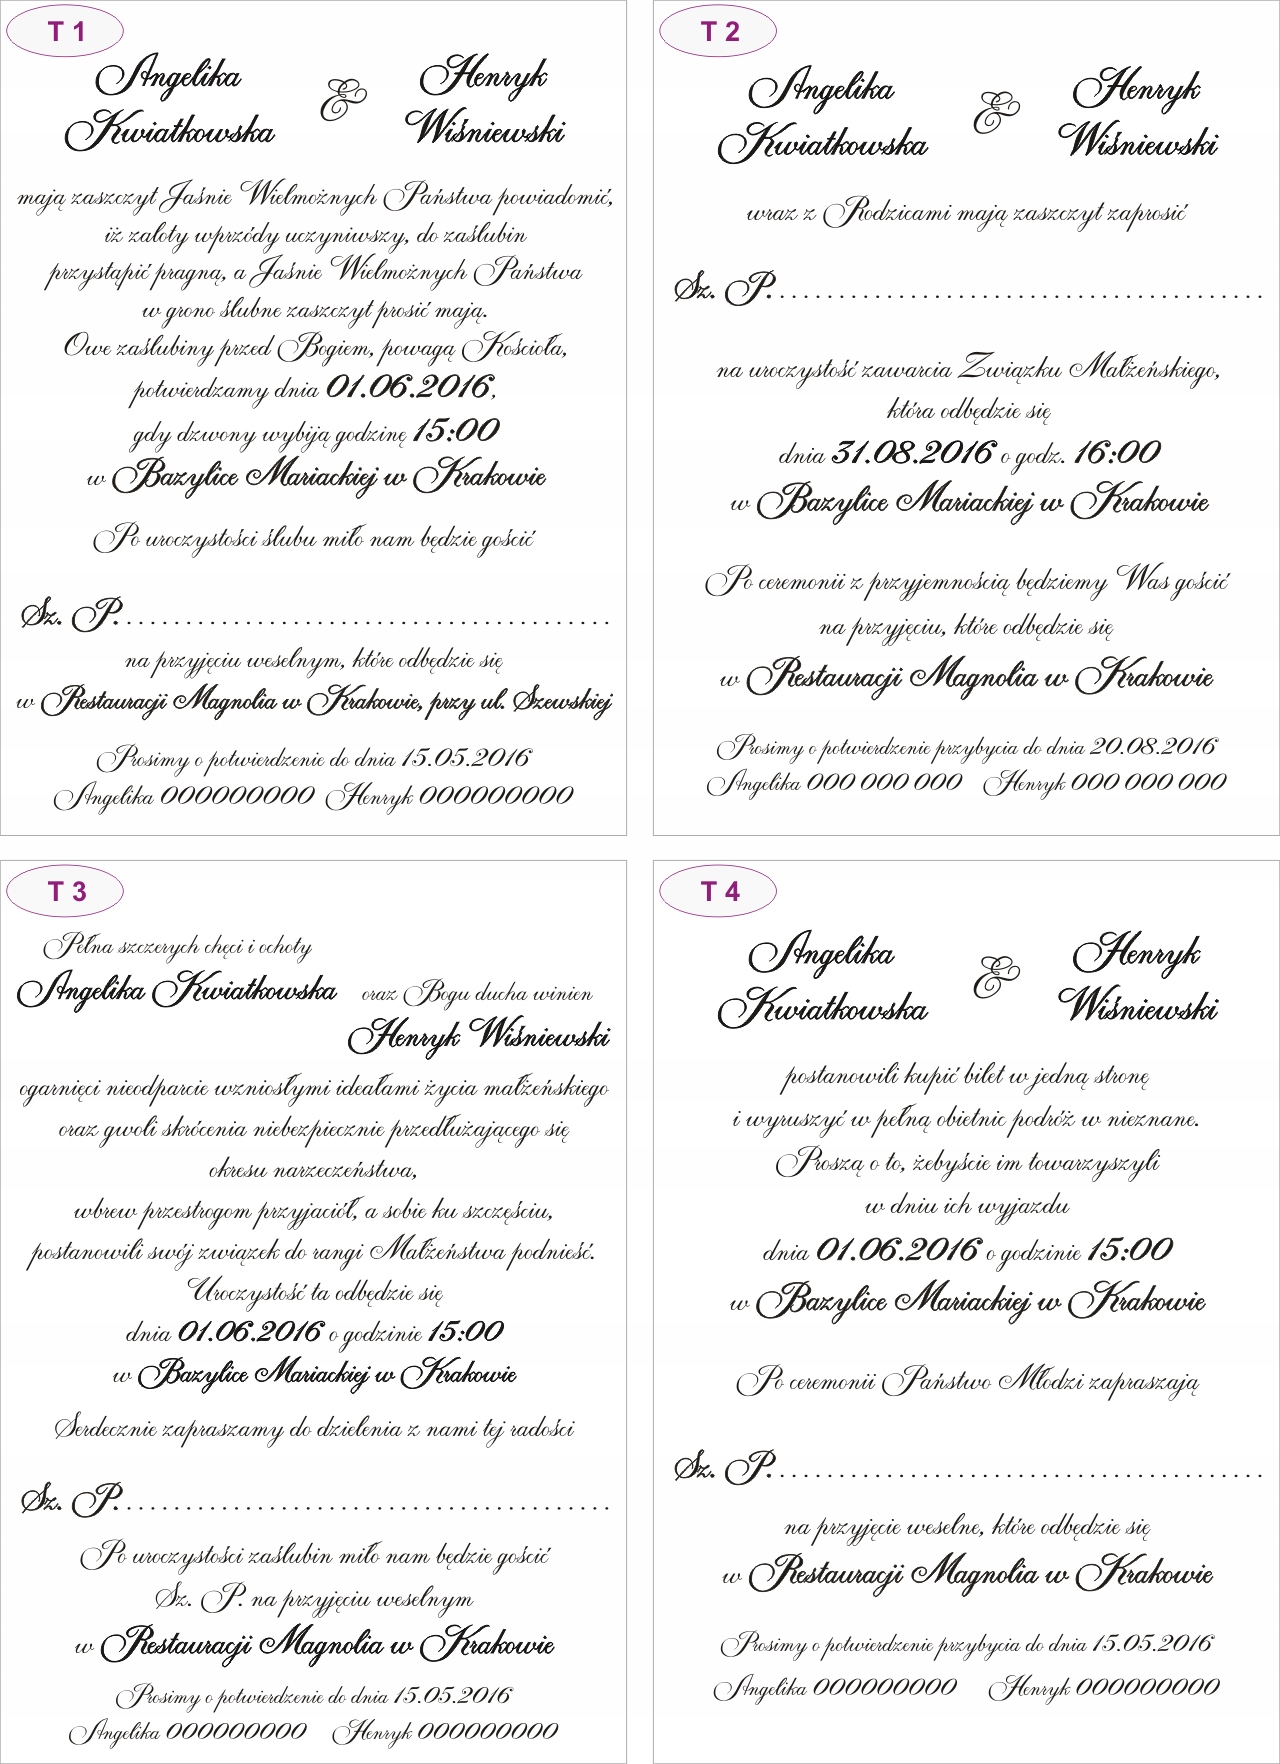 T 1
Angelika
Kwiatkowska
&
Henryk
Wiśniewski
mają zaszczyt Jaśnie Wielmożnych Państwa powiadomić,
iż zaloty wprzódy uczyniwszy, do zaślubin
przystąpić pragną, a Jaśnie Wielmożnych Państwa
w grono ślubne zaszczyt prosić mają.
Owe zaślubiny przed Bogiem, powagą Kościoła,
potwierdzamy dnia 01.06.2016,
gdy dzwony wybiją godzinę 15:00
w Bazylice Mariackiej w Krakowie
Po uroczystości ślubu miło nam będzie gościć
Sz. P.........................................
na przyjęciu weselnym, które odbędzie się
w Restauracji Magnolia w Krakowie, przy ul. Szewskiej
Prosimy o potwierdzenie do dnia 15.05.2016
Angelika 000000000 Henryk 000000000
T 2
Angelika
Kwiatkowska
&
Henryk
Wiśniewski
wraz z Rodzicami mają zaszczyt zaprosić
Sz. P.........................................
na uroczystość zawarcia Związku Małżeńskiego,
która odbędzie się
dnia 31.08.2016 o godz. 16:00
w Bazylice Mariackiej w Krakowie
Po ceremonii z przyjemnością będziemy Was gościć
na przyjęciu, które odbędzie się
w Restauracji Magnolia w Krakowie
Prosimy o potwierdzenie przybycia do dnia 20.08.2016
Angelika 000 000 000 Henryk 000 000 000
T 3
Pełna szczerych chęci i ochoty
Angelika Kwiatkowska oraz Bogu ducha winien
Henryk Wiśniewski
ogarnięci nieodparcie wzniosłymi ideałami życia małżeńskiego
oraz gwoli skrócenia niebezpiecznie przedłużającego się
okresu narzeczeństwa,
wbrew przestrogom przyjaciół, a sobie ku szczęściu,
postanowili swój związek do rangi Małżeństwa podnieść.
Uroczystość ta odbędzie się
dnia 01.06.2016 o godzinie 15:00
w Bazylice Mariackiej w Krakowie
Serdecznie zapraszamy do dzielenia z nami tej radości
Sz. P.........................................
Po uroczystości zaślubin miło nam będzie gościć
Sz. P. na przyjęciu weselnym
w Restauracji Magnolia w Krakowie
Prosimy o potwierdzenie do dnia 15.05.2016
Angelika 000000000 Henryk 000000000
T 4
Angelika
Kwiatkowska
&
Henryk
Wiśniewski
postanowili kupić bilet w jedną stronę
i wyruszyć w pełną obietnic podróż w nieznane.
Proszą o to, żebyście im towarzyszyli
w dniu ich wyjazdu
dnia 01.06.2016 o godzinie 15:00
w Bazylice Mariackiej w Krakowie
Po ceremonii Państwo Młodzi zapraszają
Sz. P.........................................
na przyjęcie weselne, które odbędzie się
w Restauracji Magnolia w Krakowie
Prosimy o potwierdzenie przybycia do dnia 15.05.2016
Angelika 000000000 Henryk 000000000